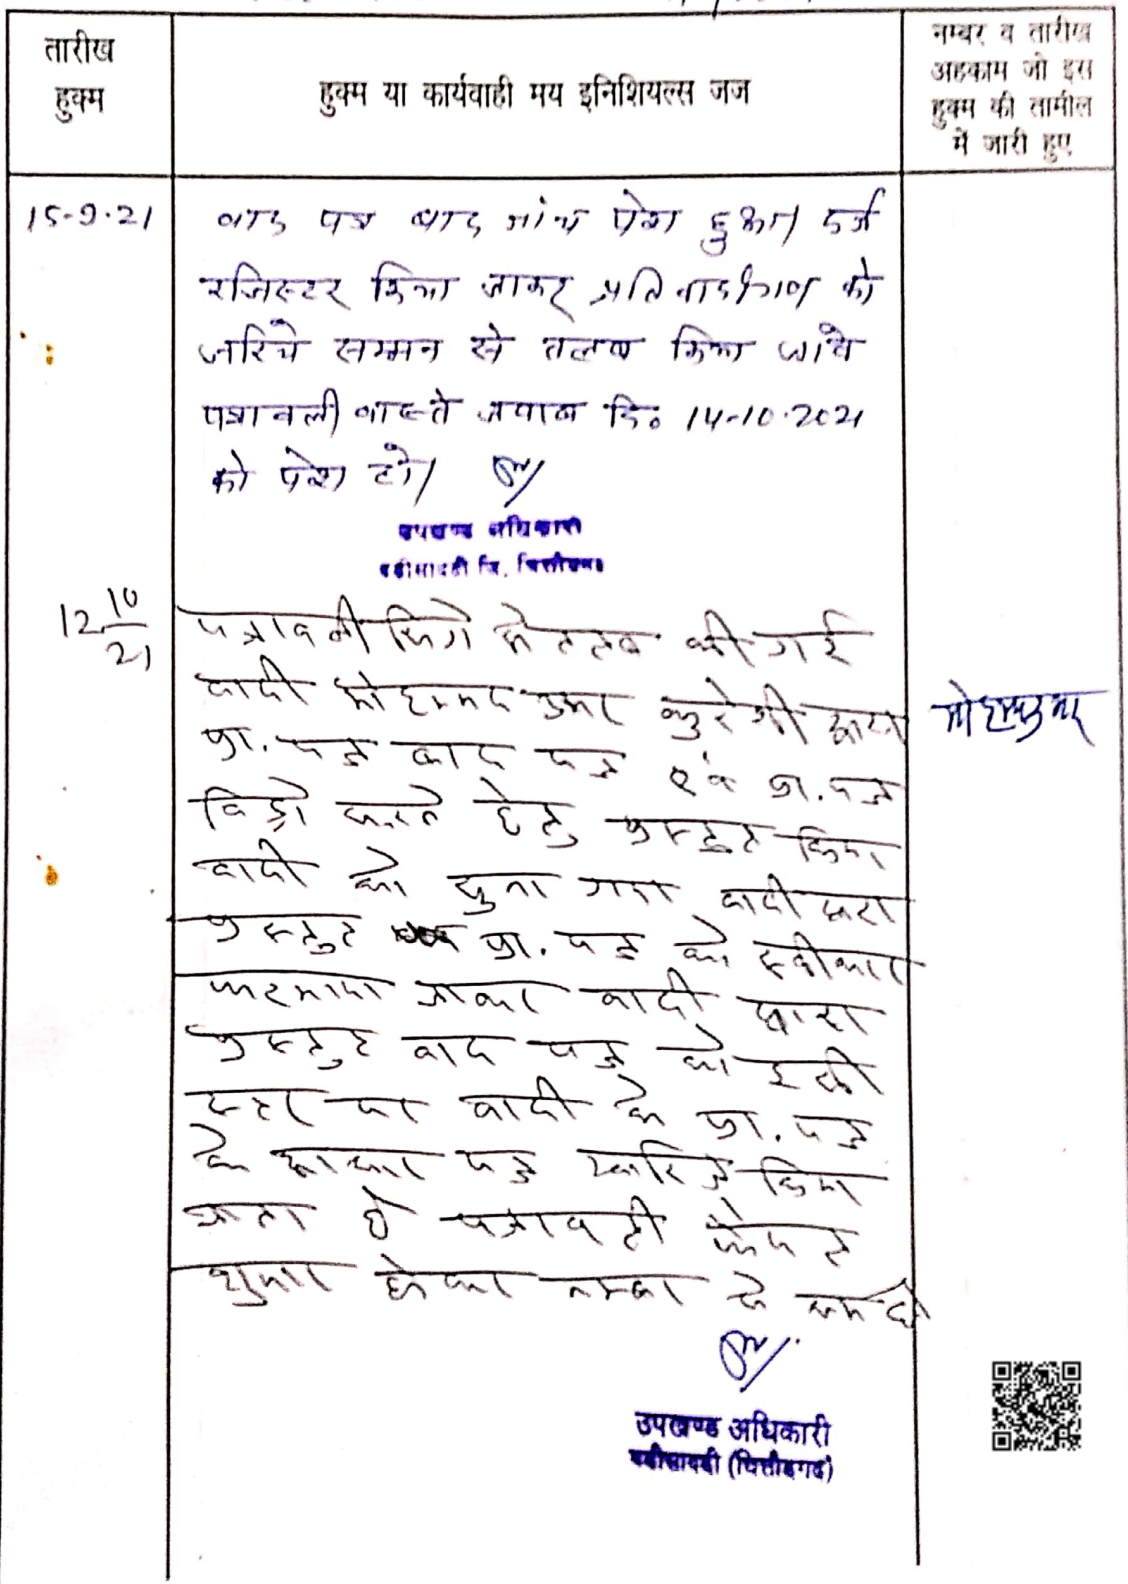 तारीख
हुक्म
हुक्म या कार्यवाही मय इनिशियल्स जज
नम्बर व तारीख
अहकाम जो इस
हुक्म की तामील
में जारी हुए
15-9-21
वाद पत्र बाद जांच पेश हुआ। दर्ज
रजिस्टर किया जाकर प्रतिवादीगण को
जरिये सम्मन से तलब किया जाये
पत्रावली वास्ते जवाब दि० 14-10-2021
को पेश हो।
उपखण्ड अधिकारी
बडीसादडी जि. चित्तौडगढ
12 10/21
पत्रावली तलब की गई
वादी मोहम्मद उमर कुरेशी द्वारा
प्रा. पत्र वाद पत्र एवं प्रा. पत्र
विड्रो करने हेतु प्रस्तुत किया
वादी को सुना गया वादी द्वारा
प्रस्तुत प्रा. पत्र को स्वीकार
फरमाया जाकर वादी द्वारा
प्रस्तुत वाद पत्र को इसी
स्तर पर वादी के प्रा. पत्र
के आधार पर खारिज किया
जाता है पत्रावली फैसल
शुमार होकर नम्बर से कम हो
उपखण्ड अधिकारी
बडीसादडी (चित्तौडगढ)